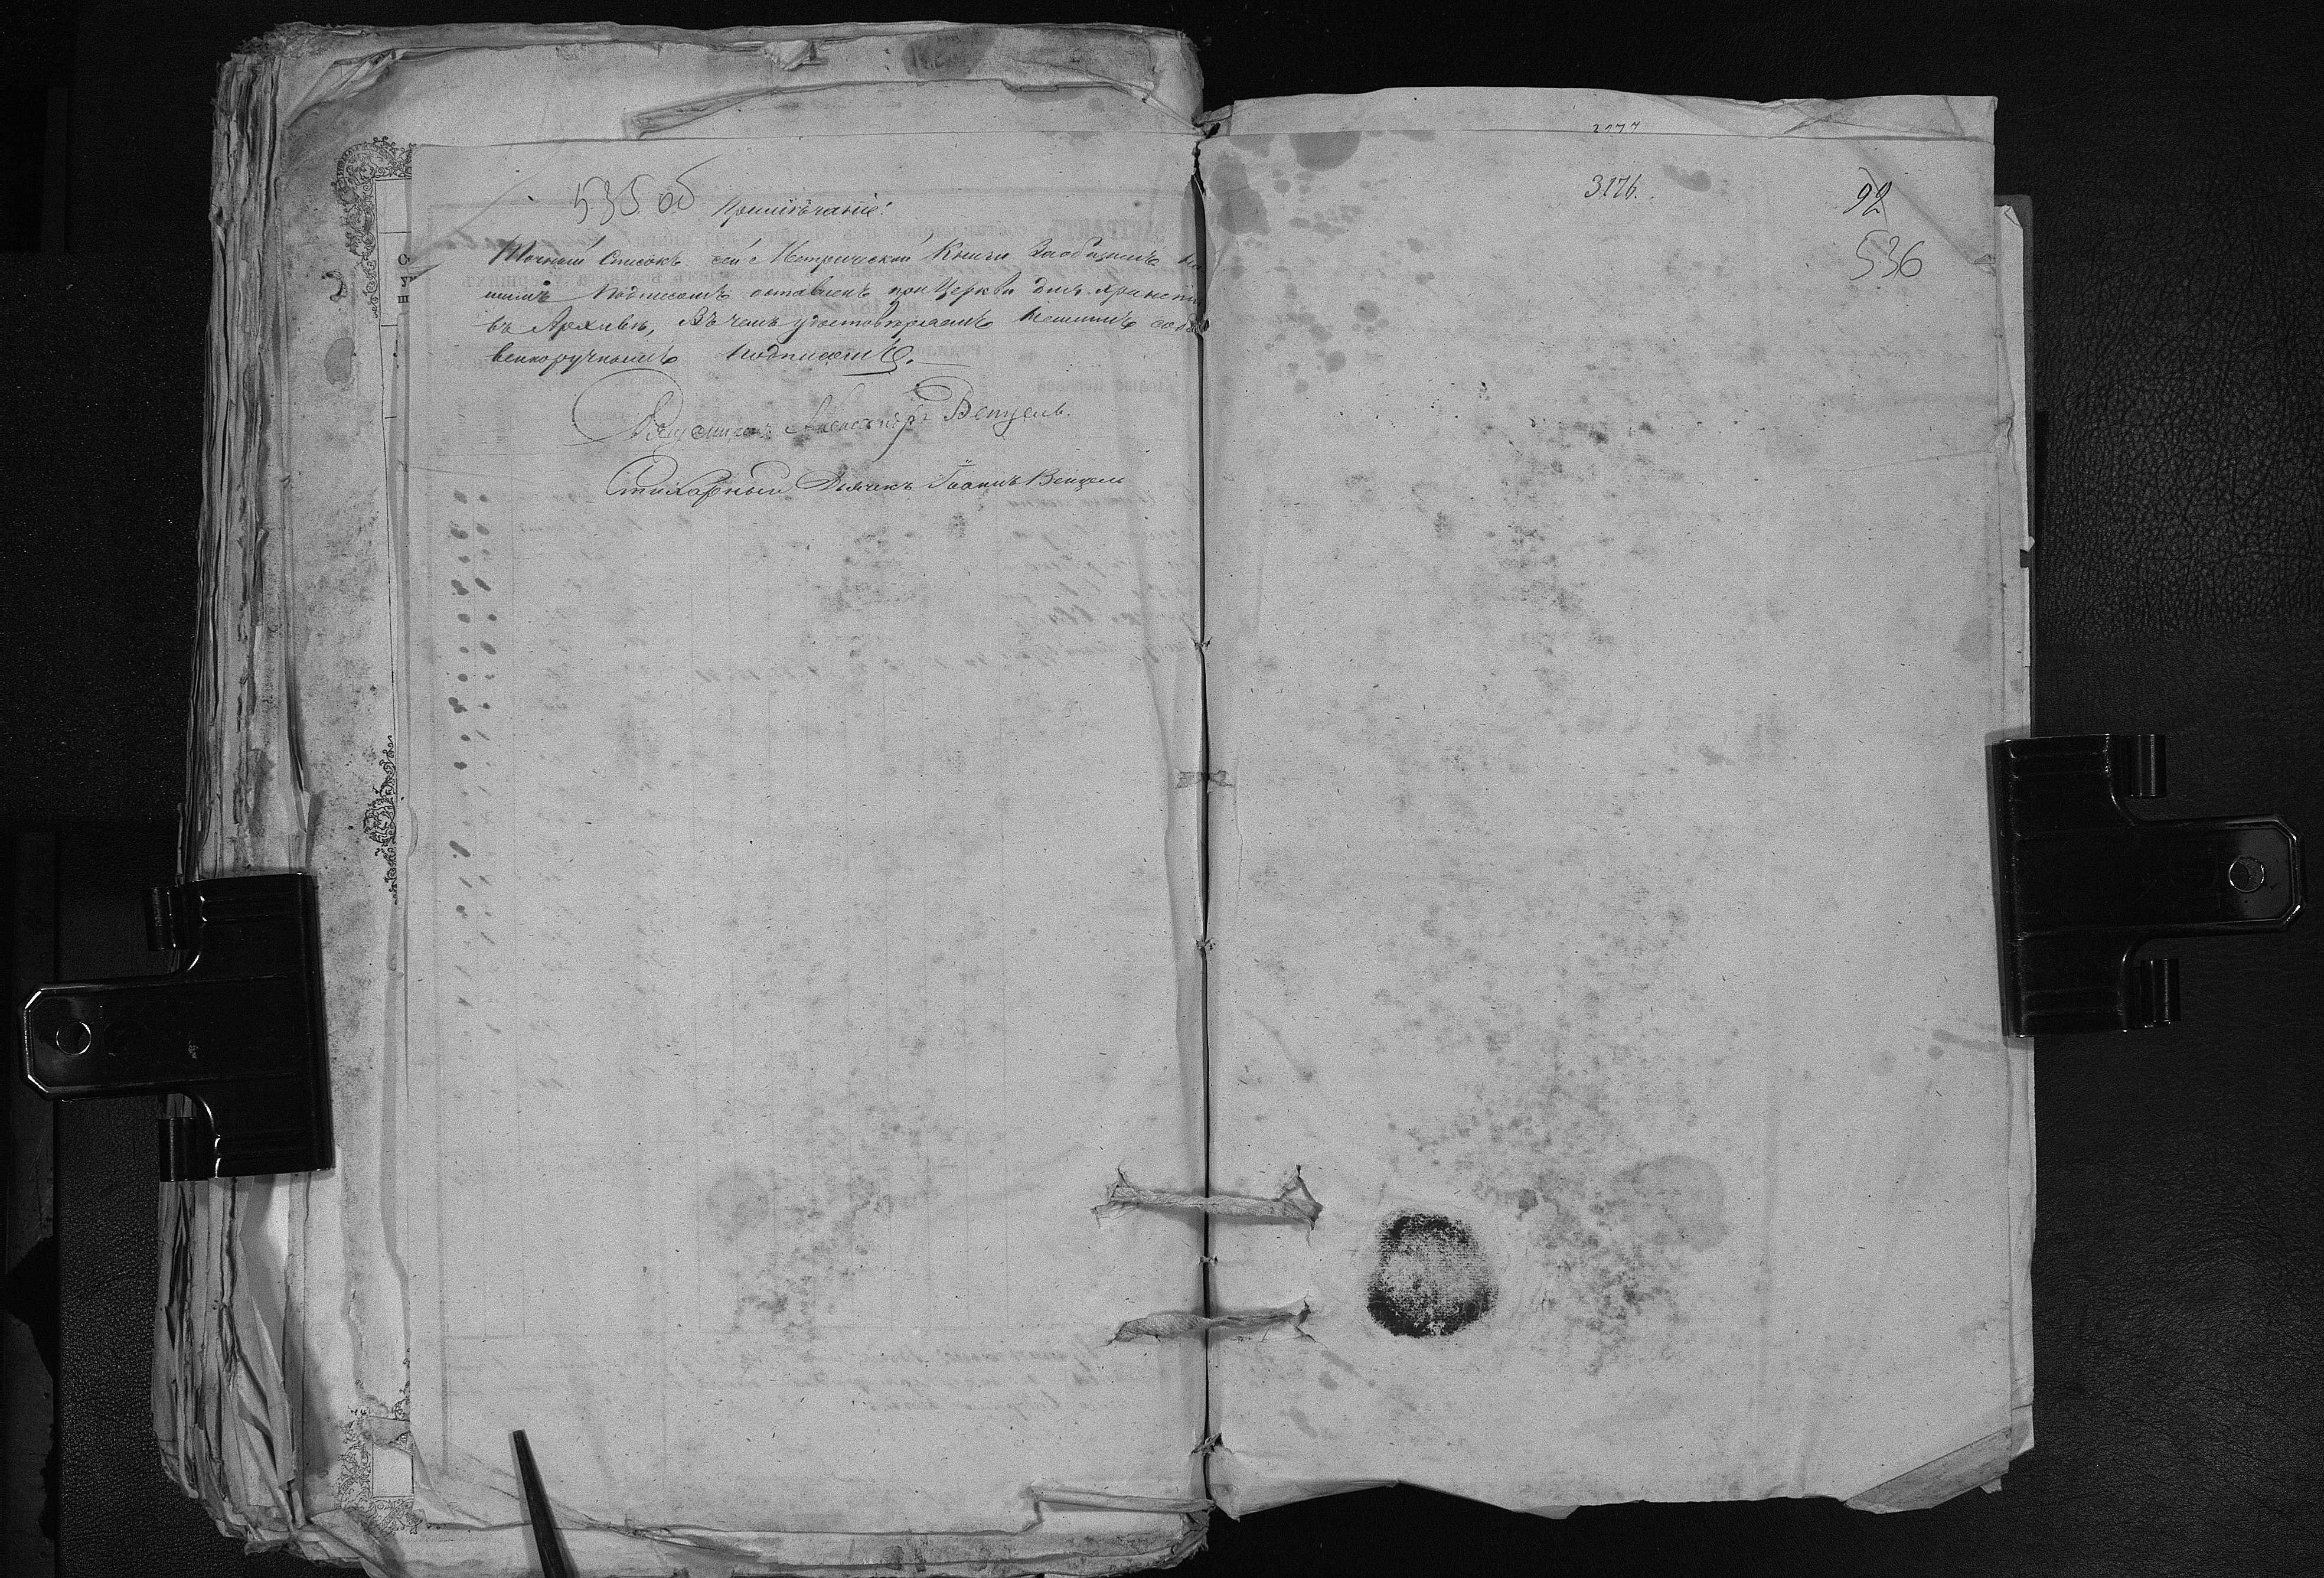 535 об
Примѣчаніе:
Точный Списокъ сей Метрической Книги за общимъ на
шимъ Подписомъ оставленъ при Церкви для храненія
въ Архивѣ, Въ чемъ удостовѣряемъ нашимъ собст
венноручнымъ подписомъ.
Священникъ Александръ Венцель.
Стихарный Дьячекъ Іоаннъ Венцель
3176.
92
536